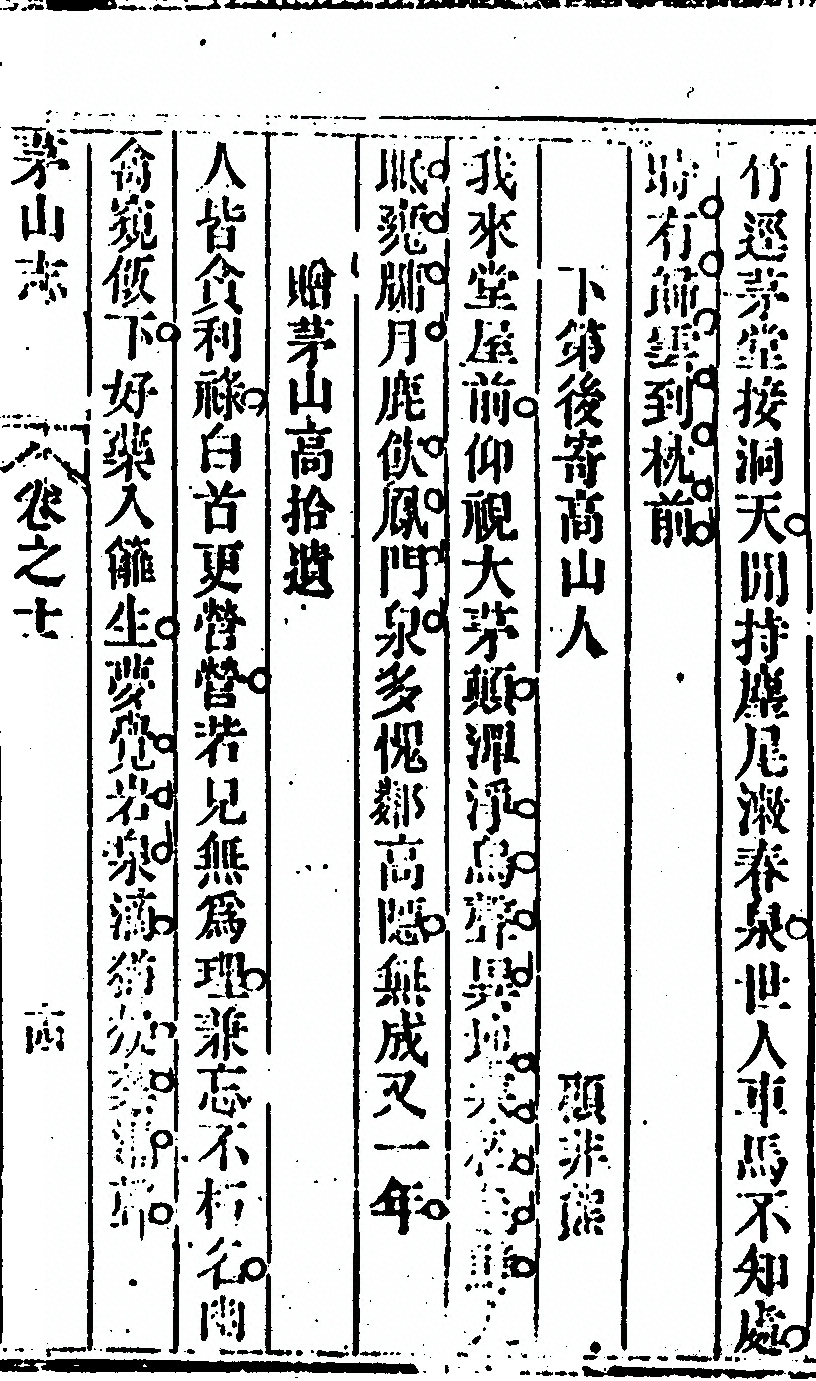 竹逕茅堂接洞天閒持麈尾漱春泉世人車馬不知處
時有歸雲到枕前
下第後寄高山人 顧非熊
我來堂屋前仰視大茅顛潭淨鳥聲異
眠窺牖月鹿伏鳳門泉多愧鄰高隱無成又一年
贈茅山高拾遺
人皆貪利祿白首更營營若見無為理兼忘不朽名幽
禽窺飯下好藥入籬生夢覺岩泉滴猶
茅山志 卷之十